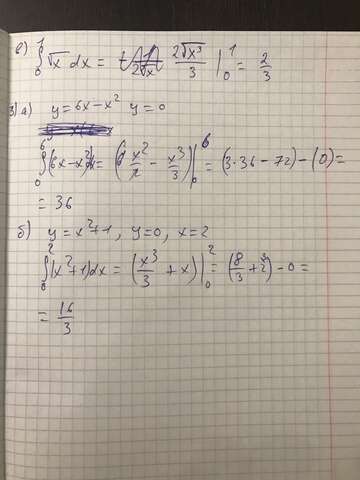 е) ∫₀¹ √x dx = 2√x³/3 |₀¹ = 2/3
3) а) y = 6x − x² y = 0
∫₀⁶ (6x−x²)dx = (6 x²/2 − x³/3)|₀⁶ = (3·36 − 72) − (0) =
= 36
б) y = x²+1, y=0, x=2
∫₀² (x²+1)dx = (x³/3 + x)|₀² = (8/3 + 2) − 0 =
= 16/3